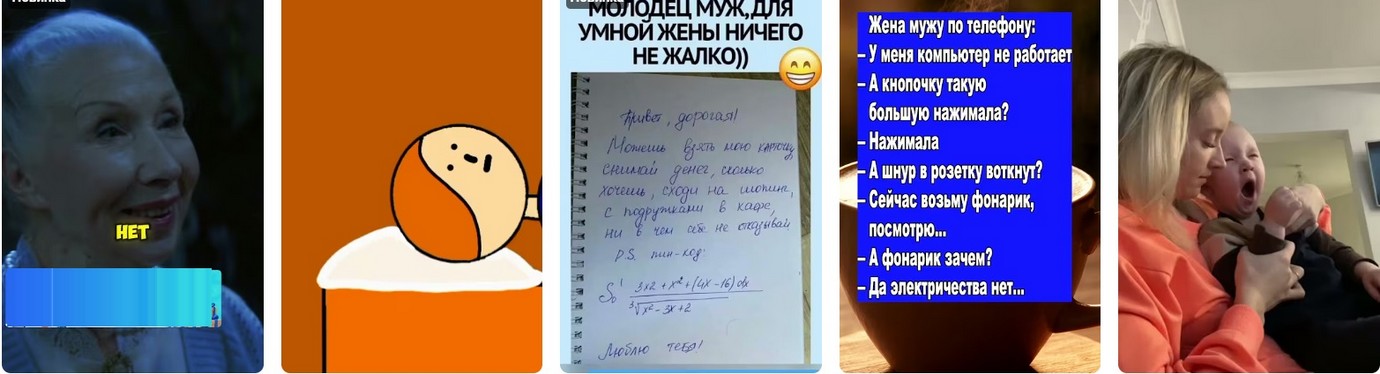 Новинка
НЕТ
Новинка
МОЛОДЕЦ МУЖ,ДЛЯ
УМНОЙ ЖЕНЫ НИЧЕГО
НЕ ЖАЛКО))
Привет, дорогая!
Можешь взять мою карточку
снимай денег, сколько
хочешь, сходи на шопинг,
с подружками в кафе,
ни в чем себе не отказывай
P.S. пин-код:
∫₀¹ 3x2 + x² + (4x - 16) dx
³√x² - 3x + 2
Люблю тебя!
Жена мужу по телефону:
– У меня компьютер не работает
– А кнопочку такую
большую нажимала?
– Нажимала
– А шнур в розетку воткнут?
– Сейчас возьму фонарик,
посмотрю...
– А фонарик зачем?
– Да электричества нет...